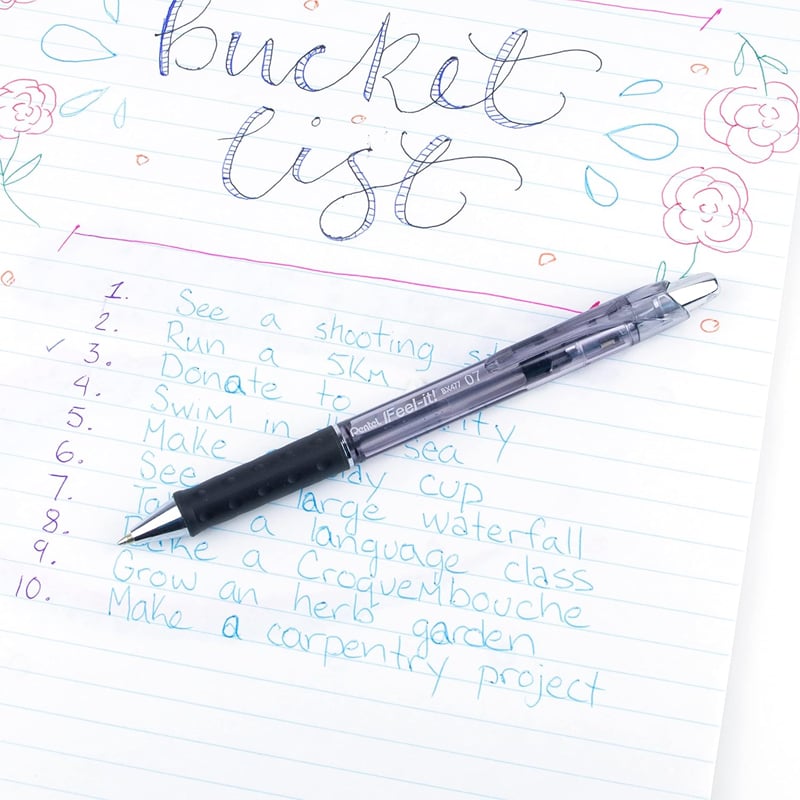 bucket
list
1. See a shooting
2. Run a 5Km
✓ 3. Donate to
4. Swim in sea
5. Make cup
6. See large waterfall
7. a language class
8. a Croquembouche
9. Grow an herb garden
10. Make a carpentry project
Pentel IFeel-it! BX477 07